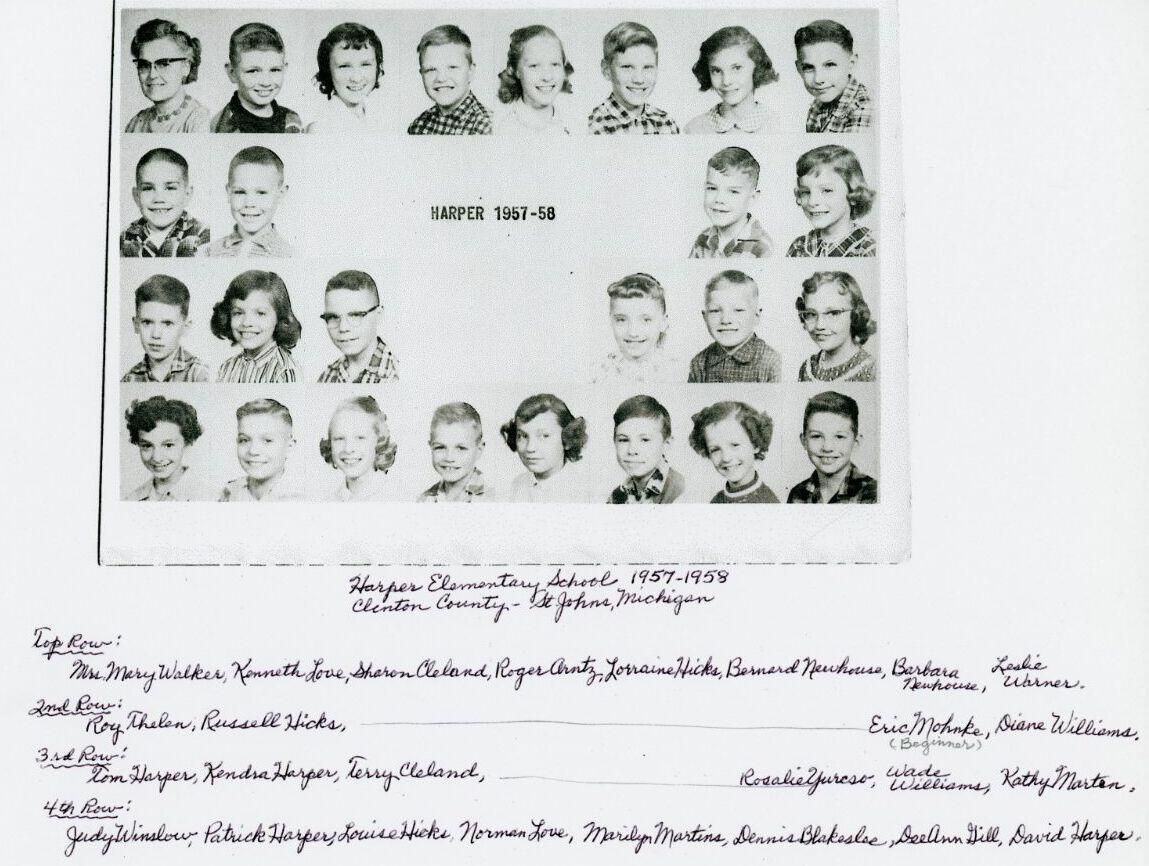 HARPER 1957-58
Harper Elementary School 1957-1958
Clinton County - St Johns, Michigan
Top Row:
Mrs. Mary Walker, Kenneth Love, Sharon Cleland, Roger Arntz, Lorraine Hicks, Bernard Newhouse, Barbara Newhouse, Leslie Warner.
2nd Row:
Roy Thelen, Russell Hicks, Eric Mohnke, Diane Williams.
(Beginner)
3rd Row:
Tom Harper, Kendra Harper, Terry Cleland, Rosalie Yurcso, Wade Williams, Kathy Marten.
4th Row:
Judy Winslow, Patrick Harper, Louise Hicks, Norman Love, Marilyn Martins, Dennis Blakeslee, DeeAnn Gill, David Harper.